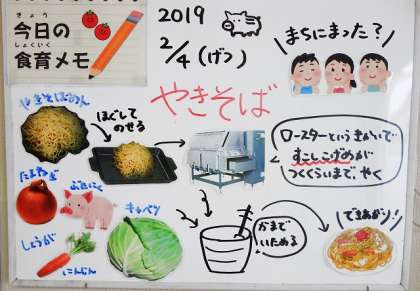 きょう
今日の
しょくいく
食育メモ
2019
2/4(げつ)
まちにまった?
やきそば
やきそばめん
ほぐして
のせる
ロースターというきかいで
すこしこげめが
つくくらいまで やく
たまねぎ
ぶたにく
キャベツ
しょうが
にんじん
かまで
いためる
できあがり!